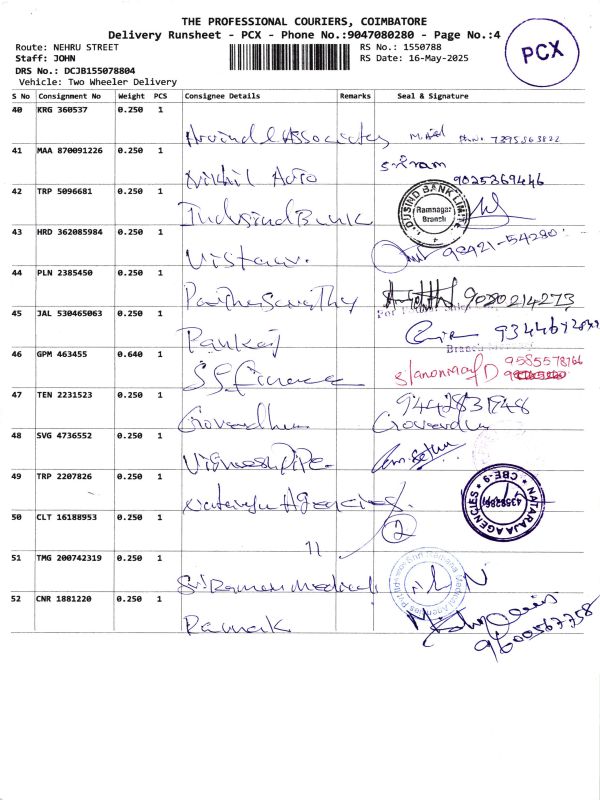 THE PROFESSIONAL COURIERS, COIMBATORE
Delivery Runsheet - PCX - Phone No.:9047080280 - Page No.:4
Route: NEHRU STREET
RS No.: 1550788
PCX
Staff: JOHN
RS Date: 16-May-2025
DRS No.: DCJB155078804
Vehicle: Two Wheeler Delivery
S No Consignment No Weight PCS Consignee Details Remarks Seal & Signature
40 KRG 360537 0.250 1
Arvind & Associates
41 MAA 870091226 0.250 1
Nikhil Auto Sriram 9025369446
42 TRP 5096681 0.250 1
IndusInd Bank
INDUSIND BANK LIMITED Ramnagar Branch
43 HRD 362085984 0.250 1
Vistaar 98421-54280
44 PLN 2385450 0.250 1
Parthasarathy 9080214273
45 JAL 530465063 0.250 1
Pankaj
46 GPM 463455 0.640 1
SS Finance 9585578766
47 TEN 2231523 0.250 1
9442831948
Goverdhan
48 SVG 4736552 0.250 1
Vignesh Pipe
49 TRP 2207826 0.250 1
Nataraja Agencies
NATARAJA AGENCIES CBE-9
50 CLT 16188953 0.250 1
11 2
51 TMG 200742319 0.250 1
Sri Raman Medical
52 CNR 1881220 0.250 1
Ramak
9600567758